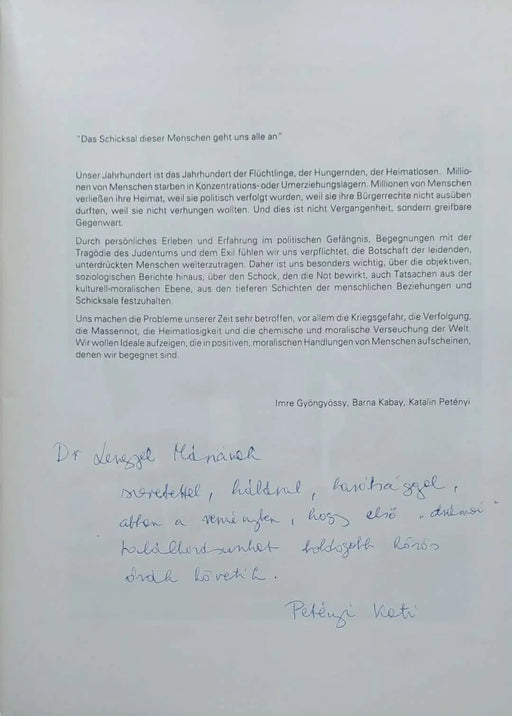 "Das Schicksal dieser Menschen geht uns alle an"
Unser Jahrhundert ist das Jahrhundert der Flüchtlinge, der Hungernden, der Heimatlosen. Millio-
nen von Menschen starben in Konzentrations- oder Umerziehungslagern. Millionen von Menschen
verließen ihre Heimat, weil sie politisch verfolgt wurden, weil sie ihre Bürgerrechte nicht ausüben
durften, weil sie nicht verhungen wollten. Und dies ist nicht Vergangenheit, sondern greifbare
Gegenwart.
Durch persönliches Erleben und Erfahrung im politischen Gefängnis, Begegnungen mit der
Tragödie des Judentums und dem Exil fühlen wir uns verpflichtet, die Botschaft der leidenden,
unterdrückten Menschen weiterzutragen. Daher ist uns besonders wichtig, über die objektiven,
soziologischen Berichte hinaus, über den Schock, den die Not bewirkt, auch Tatsachen aus der
kulturell-moralischen Ebene, aus den tieferen Schichten der menschlichen Beziehungen und
Schicksale festzuhalten.
Uns machen die Probleme unserer Zeit sehr betroffen, vor allem die Kriegsgefahr, die Verfolgung,
die Massennot, die Heimatlosigkeit und die chemische und moralische Verseuchung der Welt.
Wir wollen Ideale aufzeigen, die in positiven, moralischen Handlungen von Menschen aufscheinen,
denen wir begegnet sind.
Imre Gyöngyössy, Barna Kabay, Katalin Petényi
Dr Lengyel Máriának
szeretettel, hálával, barátsággal,
abban a reményben, hogy első "drámai"
találkozásunkat boldogabb közös
órák követik.
Petényi Kati